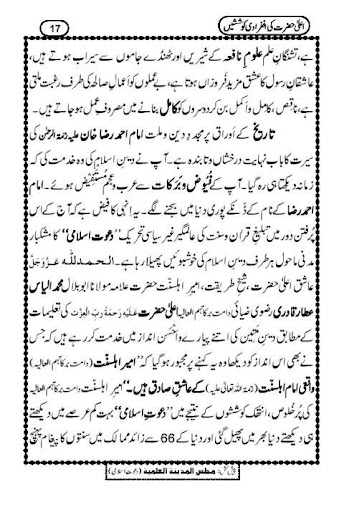 اعلیٰ حضرت کی انفرادی کوششیں
17
ہے، تشنگانِ علم علومِ نافعہ کے شیریں اور ٹھنڈے جاموں سے سیراب ہوتے ہیں،
عاشقانِ رسول کا عشق مزید فروزاں ہوتا ہے، بے عملوں کو اَعمالِ صالحہ کی طرف رغبت ملتی
ہے، ناقص، کامل و اکمل بن کر دوسروں کو کامل بنانے میں مصروفِ عمل ہوجاتے ہیں۔
تاریخ کے اَوراق پر مجددِ دین و ملت امام احمد رضا خان علیہ رحمۃ الرحمٰن کی
سیرت کا باب نہایت درخشاں و تابندہ ہے۔ آپ نے دینِ اسلام کی وہ خدمت کی کہ
زمانہ دیکھتا ہی رہ گیا۔ آپ کے فُیُوض و بَرَکات سے عرب و عجم مُستفیض ہوئے۔ امام
احمد رضا کے نام کے ڈنکے پوری دنیا میں بجنے لگے۔ یہ انہی کا فیض ہے کہ آج کے اس
پُرفتن دور میں تبلیغِ قراٰن و سنت کی عالمگیر غیر سیاسی تحریک ”دعوتِ اسلامی“ کا مشکبار
مدنی ماحول ہر طرف دینِ اسلام کی خوشبوئیں پھیلا رہا ہے۔ الحمدللہ عَزَّوَجَلَّ
عاشقِ اعلیٰ حضرت، شیخِ طریقت، امیرِ اہلسنت حضرت علامہ مولانا ابو بلال محمد الیاس
عطار قادری رضوی ضیائی دامت برکاتہم العالیہ اعلیٰ حضرت علیہ رحمۃ رب العزت کی تعلیمات
کے مطابق دینِ مَتین کی اتنے پیارے و اَحسن انداز میں خدمت کر رہے ہیں کہ جس
نے بھی اس انداز کو دیکھا وہ یہ کہنے پر مجبور ہوگیا کہ ”امیرِ اہلسنت (دامت برکاتہم العالیہ)
واقعی امامِ اہلسنت (رحمۃ اللہ تعالیٰ علیہ) کے عاشقِ صادق ہیں۔“ امیرِ اہلسنّت دامت برکاتہم العالیہ
کی پُرخلوص، انتھک کوششوں کے نتیجے میں ”دعوتِ اسلامی“ بہت کم عرصے میں دیکھتے
ہی دیکھتے دنیا بھر میں پھیل گئی اور دنیا کے 66 سے زائد ممالک میں سنتوں کا پیغام پہنچ
پیش کش: مجلس المدینۃ العلمیۃ (دعوتِ اسلامی)